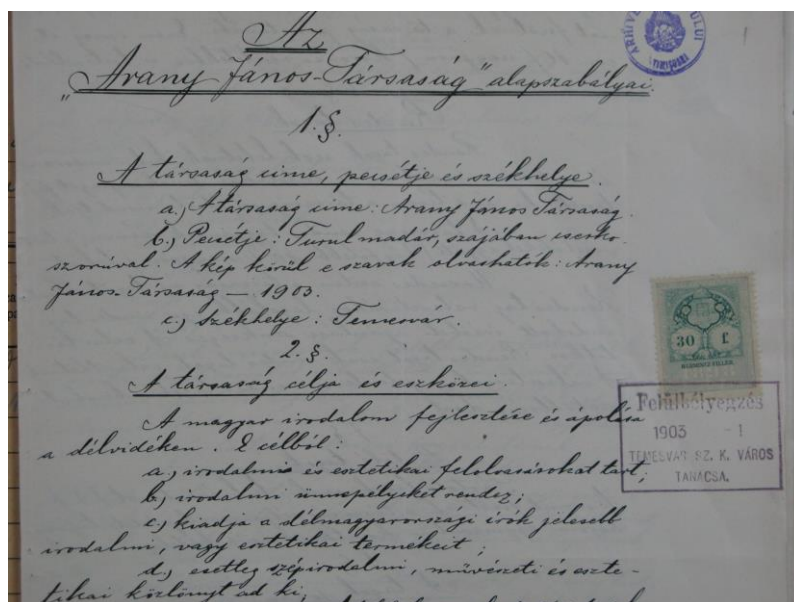 Az
„Arany János-Társaság" alapszabályai.
1. §.
A társaság cime, pecsétje és székhelye.
a.) A társaság cime: Arany János Társaság.
b.) Pecsétje: Turul madár, szájában cserko-
szorúval. A kép körül e szavak olvashatók: Arany
János-Társaság — 1903.
c.) Székhelye: Temesvár.
2. §.
A társaság célja és eszközei.
A magyar irodalom fejlesztése és ápolása
a délvidéken. E célból:
a.) irodalmi és esztetikai felolvasásokat tart;
b.) irodalmi ünnepélyeket rendez;
c.) kiadja a délmagyarországi irók jelesebb
irodalmi, vagy esztetikai termékeit;
d.) esetleg szépirodalmi, művészeti és eszte-
tikai közlönyt ad ki;
30 f.
Felülbélyegzés
1903 - 1
TEMESVÁR SZ. K. VÁROS
TANÁCSA.